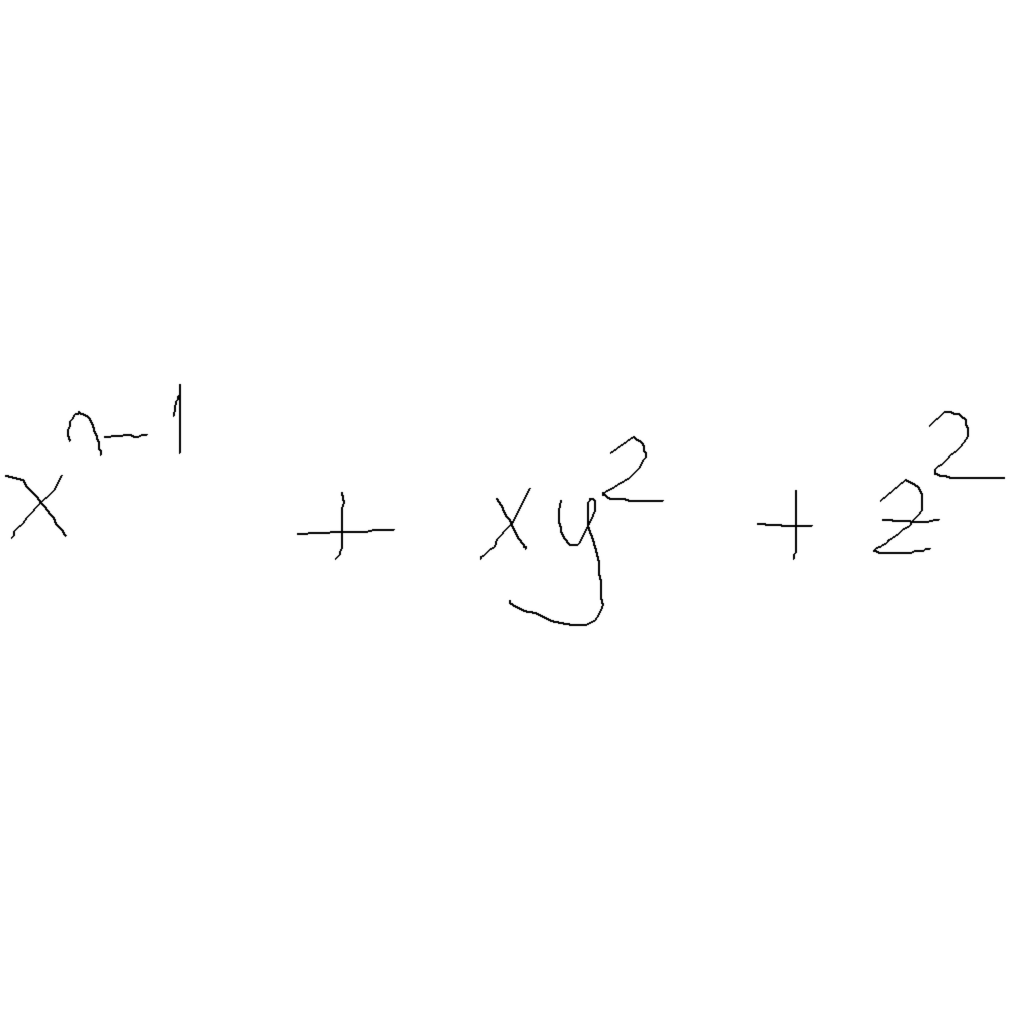 x^{n-1} + xy^2 + z^2